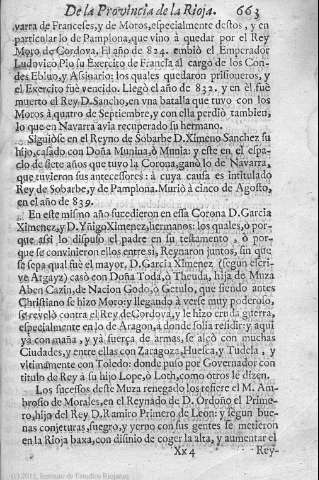 De la Provincia de la Rioja. 663
varra de Franceses, y de Moros, especialmente destos, y en
particular lo de Pamplona, que vino à quedar por el Rey
Moro de Cordova. El año de 824. embiò el Emperador
Ludovico Pio su Exercito de Francia al cargo de los Con-
des Ebluo, y Assinario; los quales quedaron prisioneros, y
el Exercito fuè vencido. Llegò el año de 832. y en èl fuè
muerto el Rey D. Sancho, en vna batalla que tuvo con los
Moros à quatro de Septiembre, y con ella perdiò tambien,
lo que en Navarra avia recuperado su hermano.
Siguiòle en el Reyno de Sobarbe D. Ximeno Sanchez su
hijo, casado con Doña Munina, ò Munia: y este en el espa-
cio de siete años que tuvo la Corona, ganò lo de Navarra,
que tuvieron sus antecessores: à cuya causa es intitulado
Rey de Sobarbe, y de Pamplona. Muriò à cinco de Agosto,
en el año de 839.
En este mismo año sucedieron en essa Corona D. Garcia
Ximenez, y D. Yñigo Ximenez, hermanos: los quales, ò por-
que assi lo dispuso el padre en su testamento, ò por-
que se convinieron ellos entre sì, Reynaron juntos, sin que
se sepa qual fuè el mayor. D. Garcia Ximenez (segun escri-
ve Argayz) casò con Doña Toda, ò Theuda, hija de Muza
Aben Cazin, de Nacion Godo, ò Getulo, que siendo antes
Christiano se hizo Moro: y llegando à verse muy poderoso,
se revelò contra el Rey de Cordova, y le hizo cruda guerra,
especialmente en lo de Aragon, à donde solia residir: y aqui
yà con maña, y yà fuerça de armas, se alçò con muchas
Ciudades, y entre ellas con Zaragoza, Huesca, y Tudela, y
vltimamente con Toledo: donde puso por Governador con
titulo de Rey à su hijo Lope, ò Loth, como otros le dizen.
Los sucessos deste Muza renegado los refiere el M. Am-
brosio de Morales, en el Reynado de D. Ordoño el Prime-
ro, hijo del Rey D. Ramiro Primero de Leon: y segun bue-
nas conjeturas, suegro, y yerno con sus gentes se metieron
en la Rioja baxa, con disinio de coger la alta, y aumentar el
Xx 4 Rey-
(C) 2011, Instituto de Estudios Riojanos